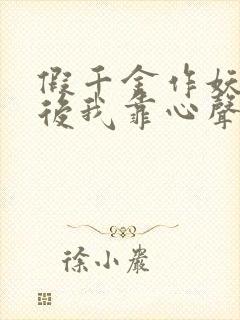 假千金作妖
後我靠心聲
徐小嚴